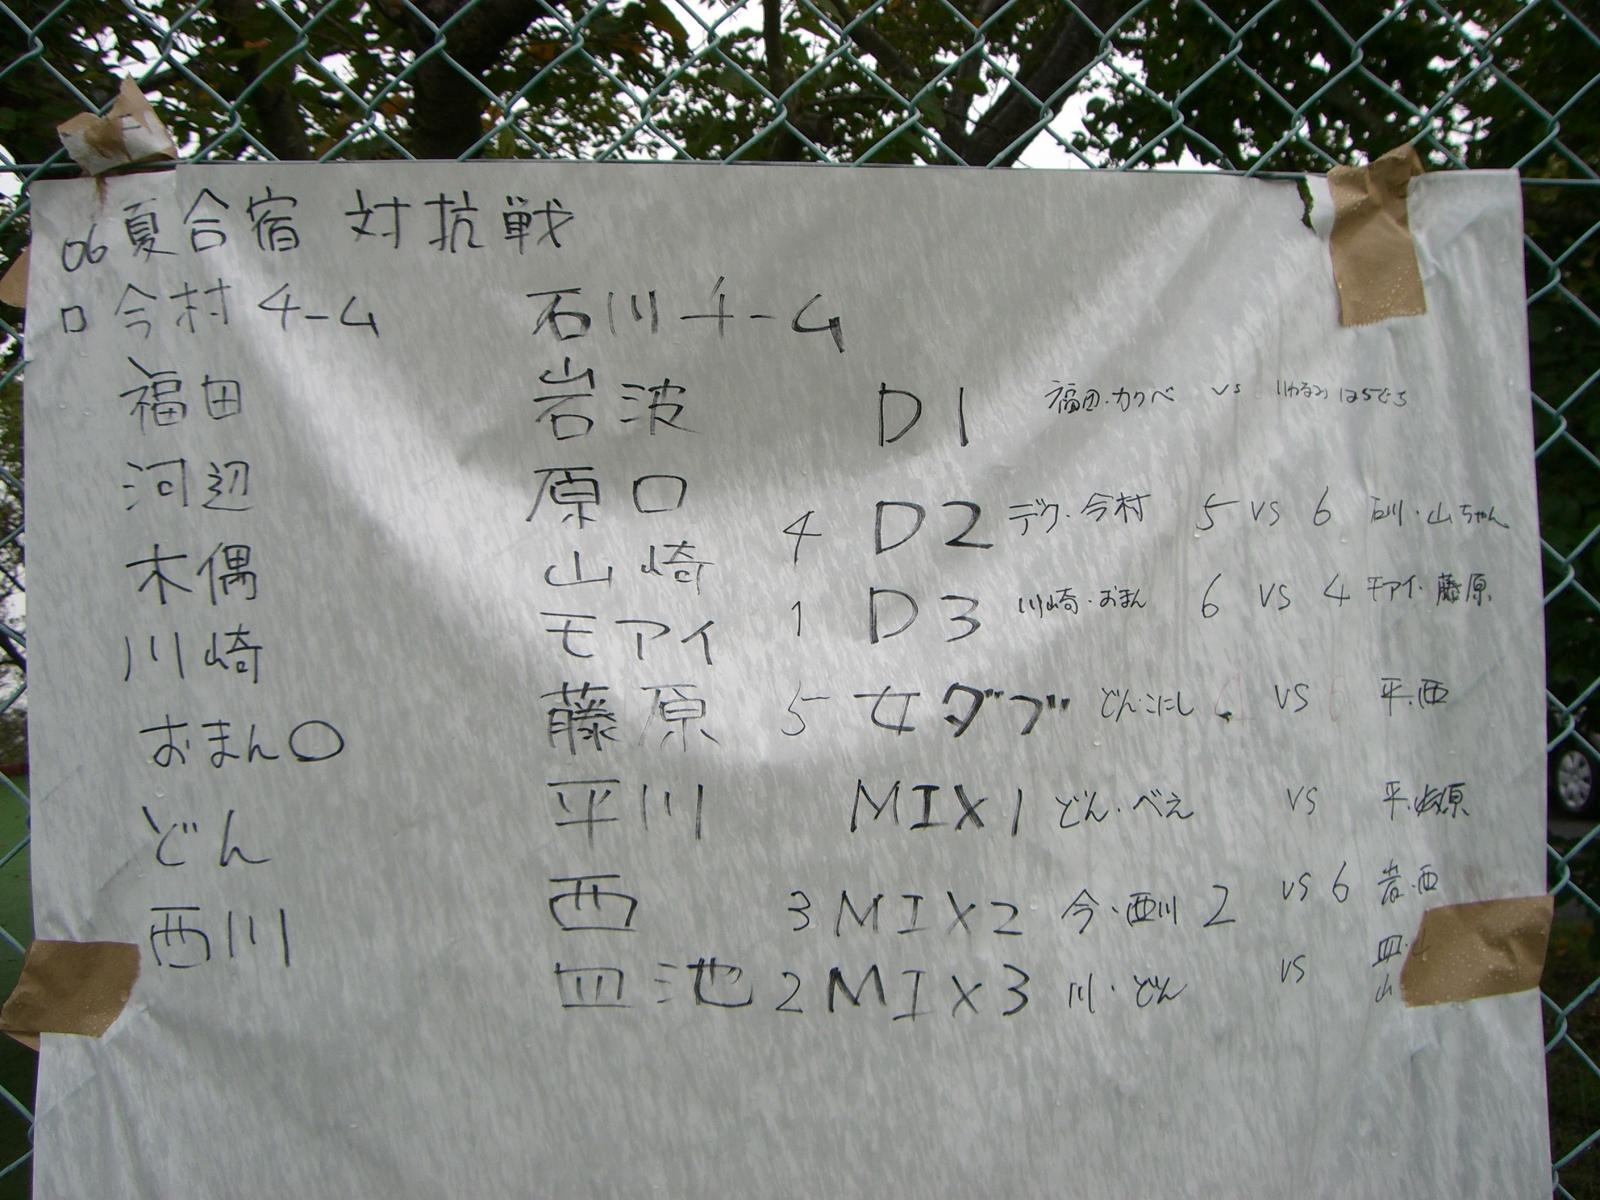 06 夏合宿 対抗戦
ロ 今村チーム 石川チーム
福田 岩波 D1 福田・カワベ vs いわなみ はらぐち
河辺 原口
4 D2 デク・今村 5 vs 6 石川・山ちゃん
木偶 山崎
1 D3 川崎・おまん 6 vs 4 モアイ・藤原
川崎 モアイ
おまん〇 藤原 5 女ダブ どん・こにし vs 平・西
どん 平川 MIX1 どん・べえ vs 平・原
西川 西 3 MIX2 今・西川 2 vs 6 岩・西
皿池 2 MIX3 川・どん vs 皿・山